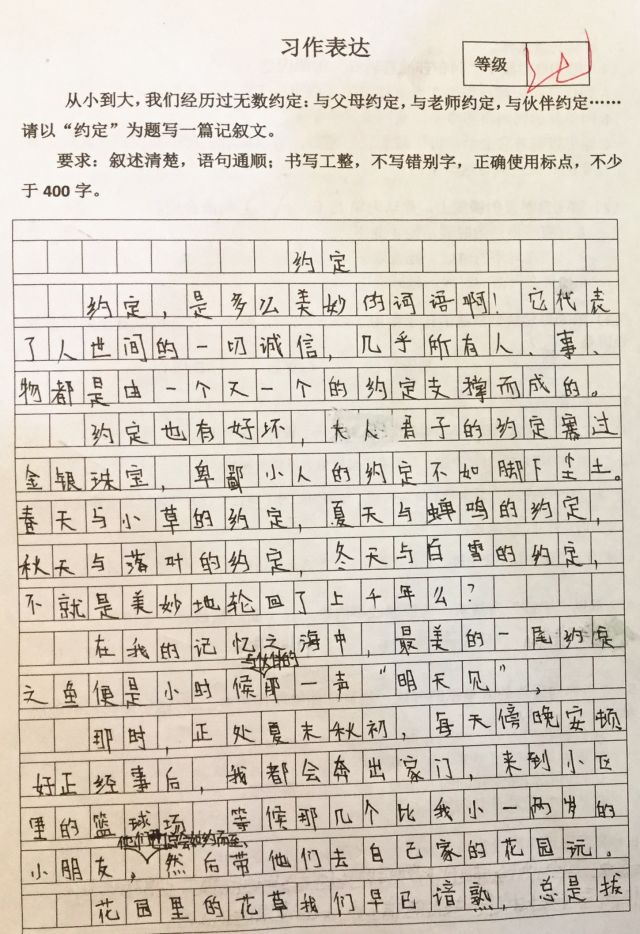 习作表达
等级
从小到大，我们经历过无数约定：与父母约定，与老师约定，与伙伴约定……
请以“约定”为题写一篇记叙文。
要求：叙述清楚，语句通顺；书写工整，不写错别字，正确使用标点，不少
于 400 字。
约定
约定，是多么美妙的词语啊！它代表
了人世间的一切诚信，几乎所有人、事、
物都是由一个又一个的约定支撑而成的。
约定也有好坏，大人君子的约定赛过
金银珠宝，卑鄙小人的约定不如脚下尘土。
春天与小草的约定，夏天与蝉鸣的约定，
秋天与落叶的约定，冬天与白雪的约定，
不就是美妙地轮回了上千年么？
在我的记忆之海中，最美的一尾约定
与伙伴的
之鱼便是小时候那一声“明天见”，
那时，正处夏末秋初，每天傍晚安顿
好正经事后，我都会奔出家门，来到小区
里的篮球场，等候那几个比我小一两岁的
他们也总会如约而至，
小朋友，然后带他们去自己家的花园玩。
花园里的花草我们早已谙熟，总是拔